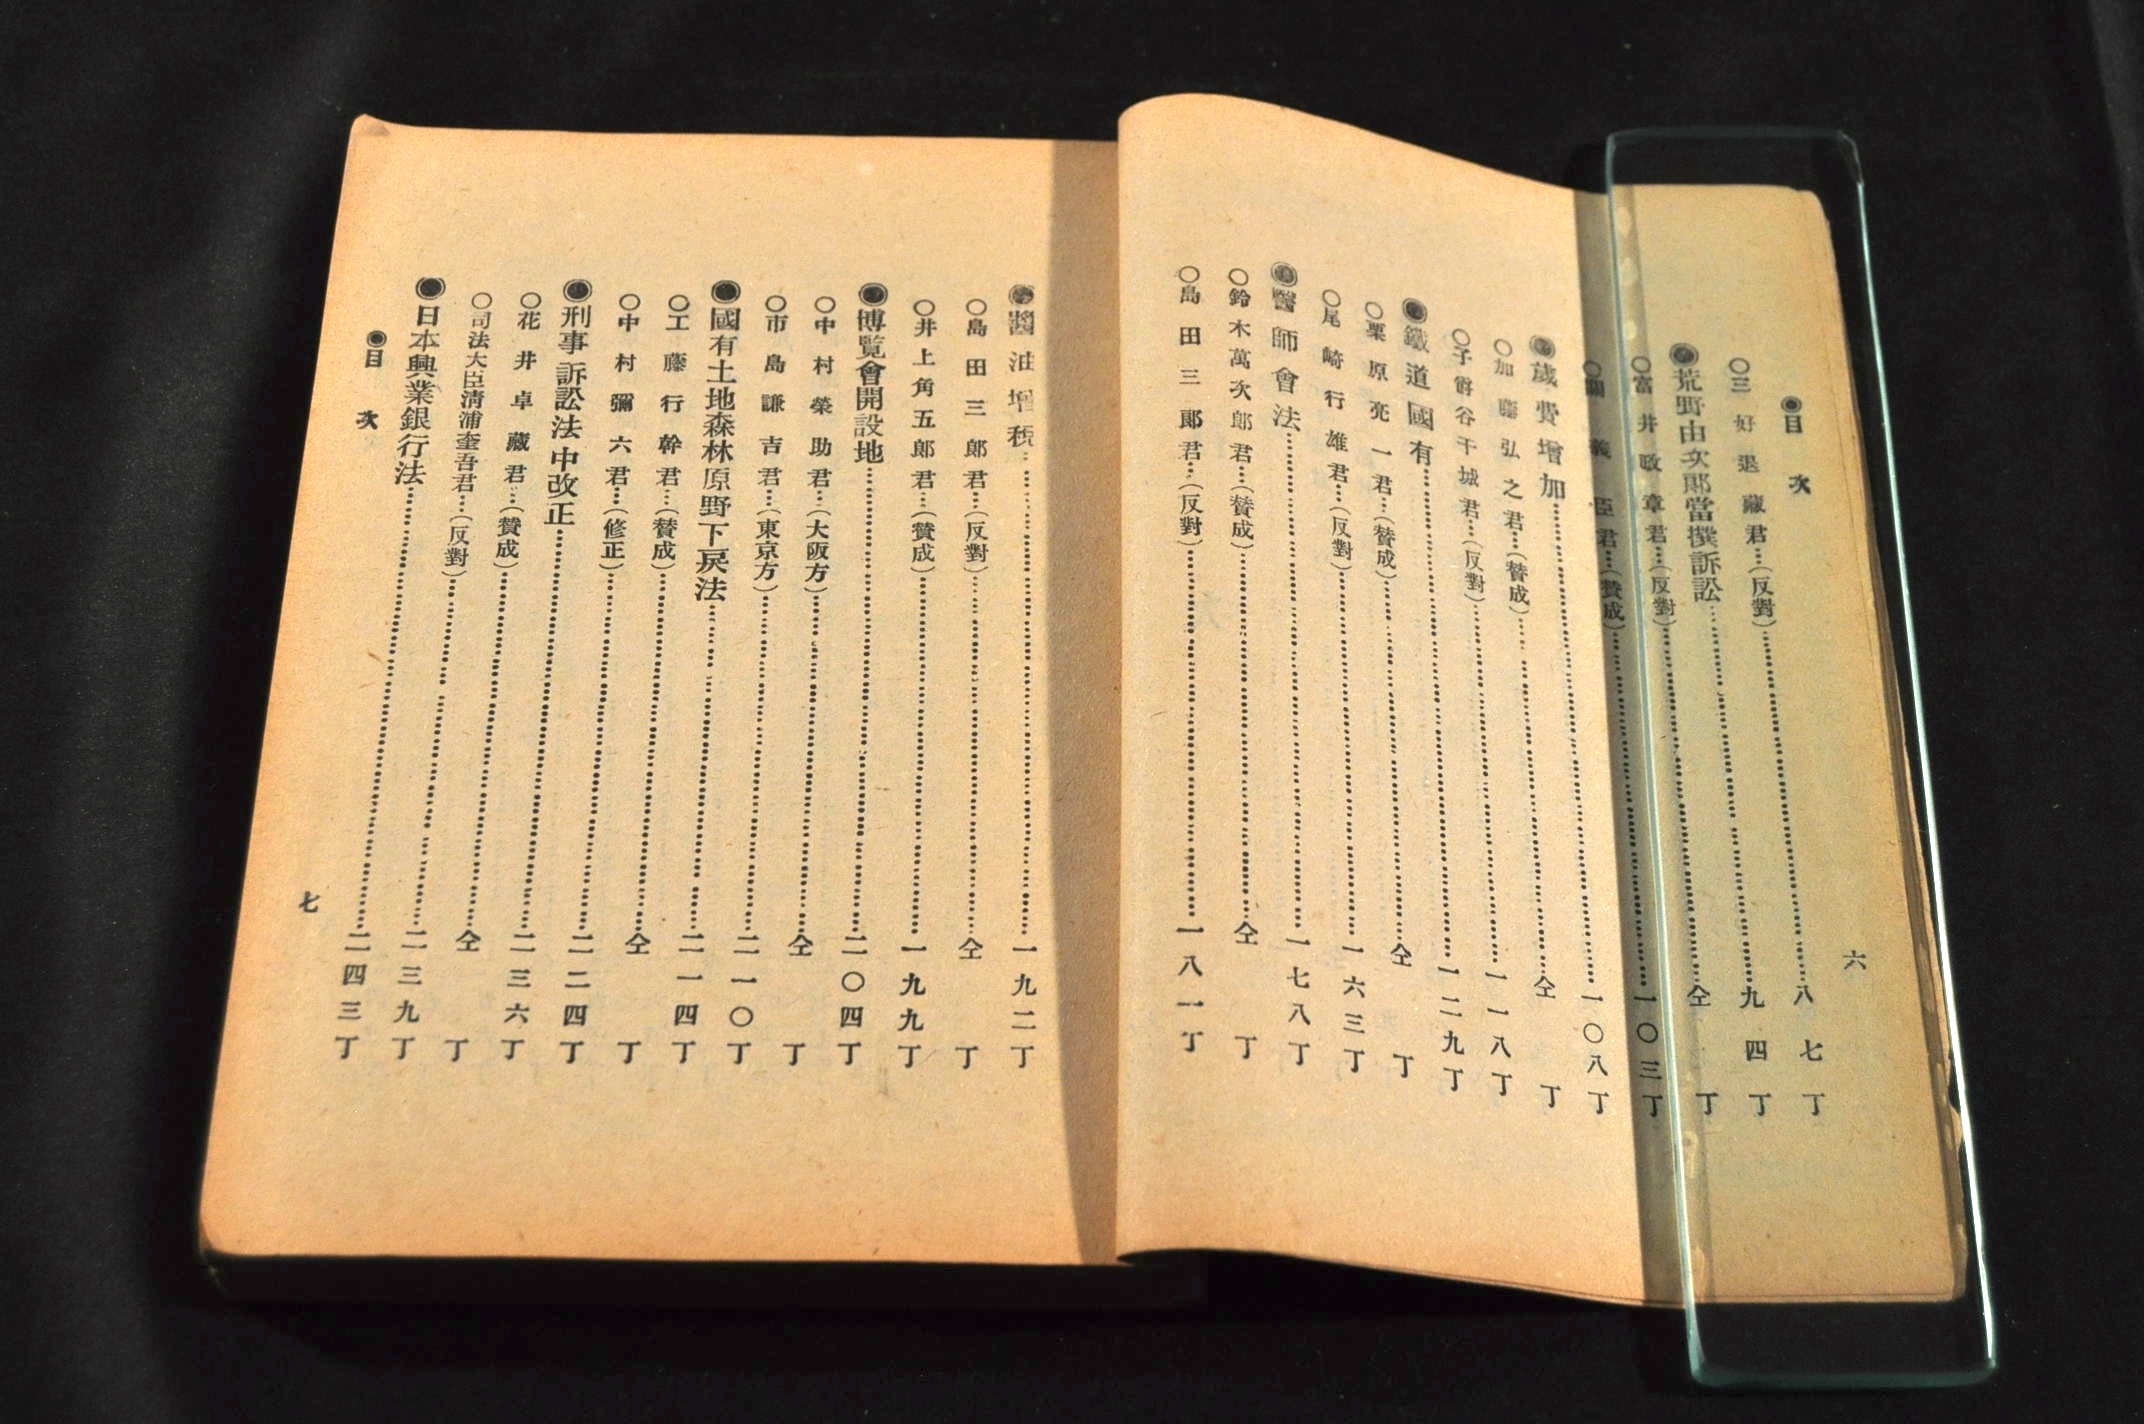 ◉目次
六
○三好退藏君…(反對)……八七丁
◉荒野由次郎當撰訴訟……九四丁
○富井政章君…(反對)……仝丁
○關義臣君…(賛成)……一〇三丁
◉歲費增加……一〇八丁
○加藤弘之君…(賛成)……仝丁
○子爵谷干城君…(反對)……一一八丁
◉鐵道國有……一二九丁
○栗原亮一君…(賛成)……仝丁
○尾崎行雄君…(反對)……一六三丁
◉醫師會法……一七八丁
○鈴木萬次郎君…(賛成)……仝丁
○島田三郎君…(反對)……一八一丁
◉醬油增稅……一九二丁
○島田三郎君…(反對)……仝丁
○井上角五郎君…(賛成)……一九九丁
◉博覽會開設地……二〇四丁
○中村榮助君…(大阪方)……仝丁
○市島謙吉君…(東京方)……二一〇丁
◉國有土地森林原野下戾法……二一四丁
○工藤行幹君…(賛成)……仝丁
○中村彌六君…(修正)……二二四丁
◉刑事訴訟法中改正……二三六丁
○花井卓藏君…(賛成)……仝丁
○司法大臣清浦奎吾君…(反對)……二三九丁
◉日本興業銀行法……二四三丁
◉目次
七